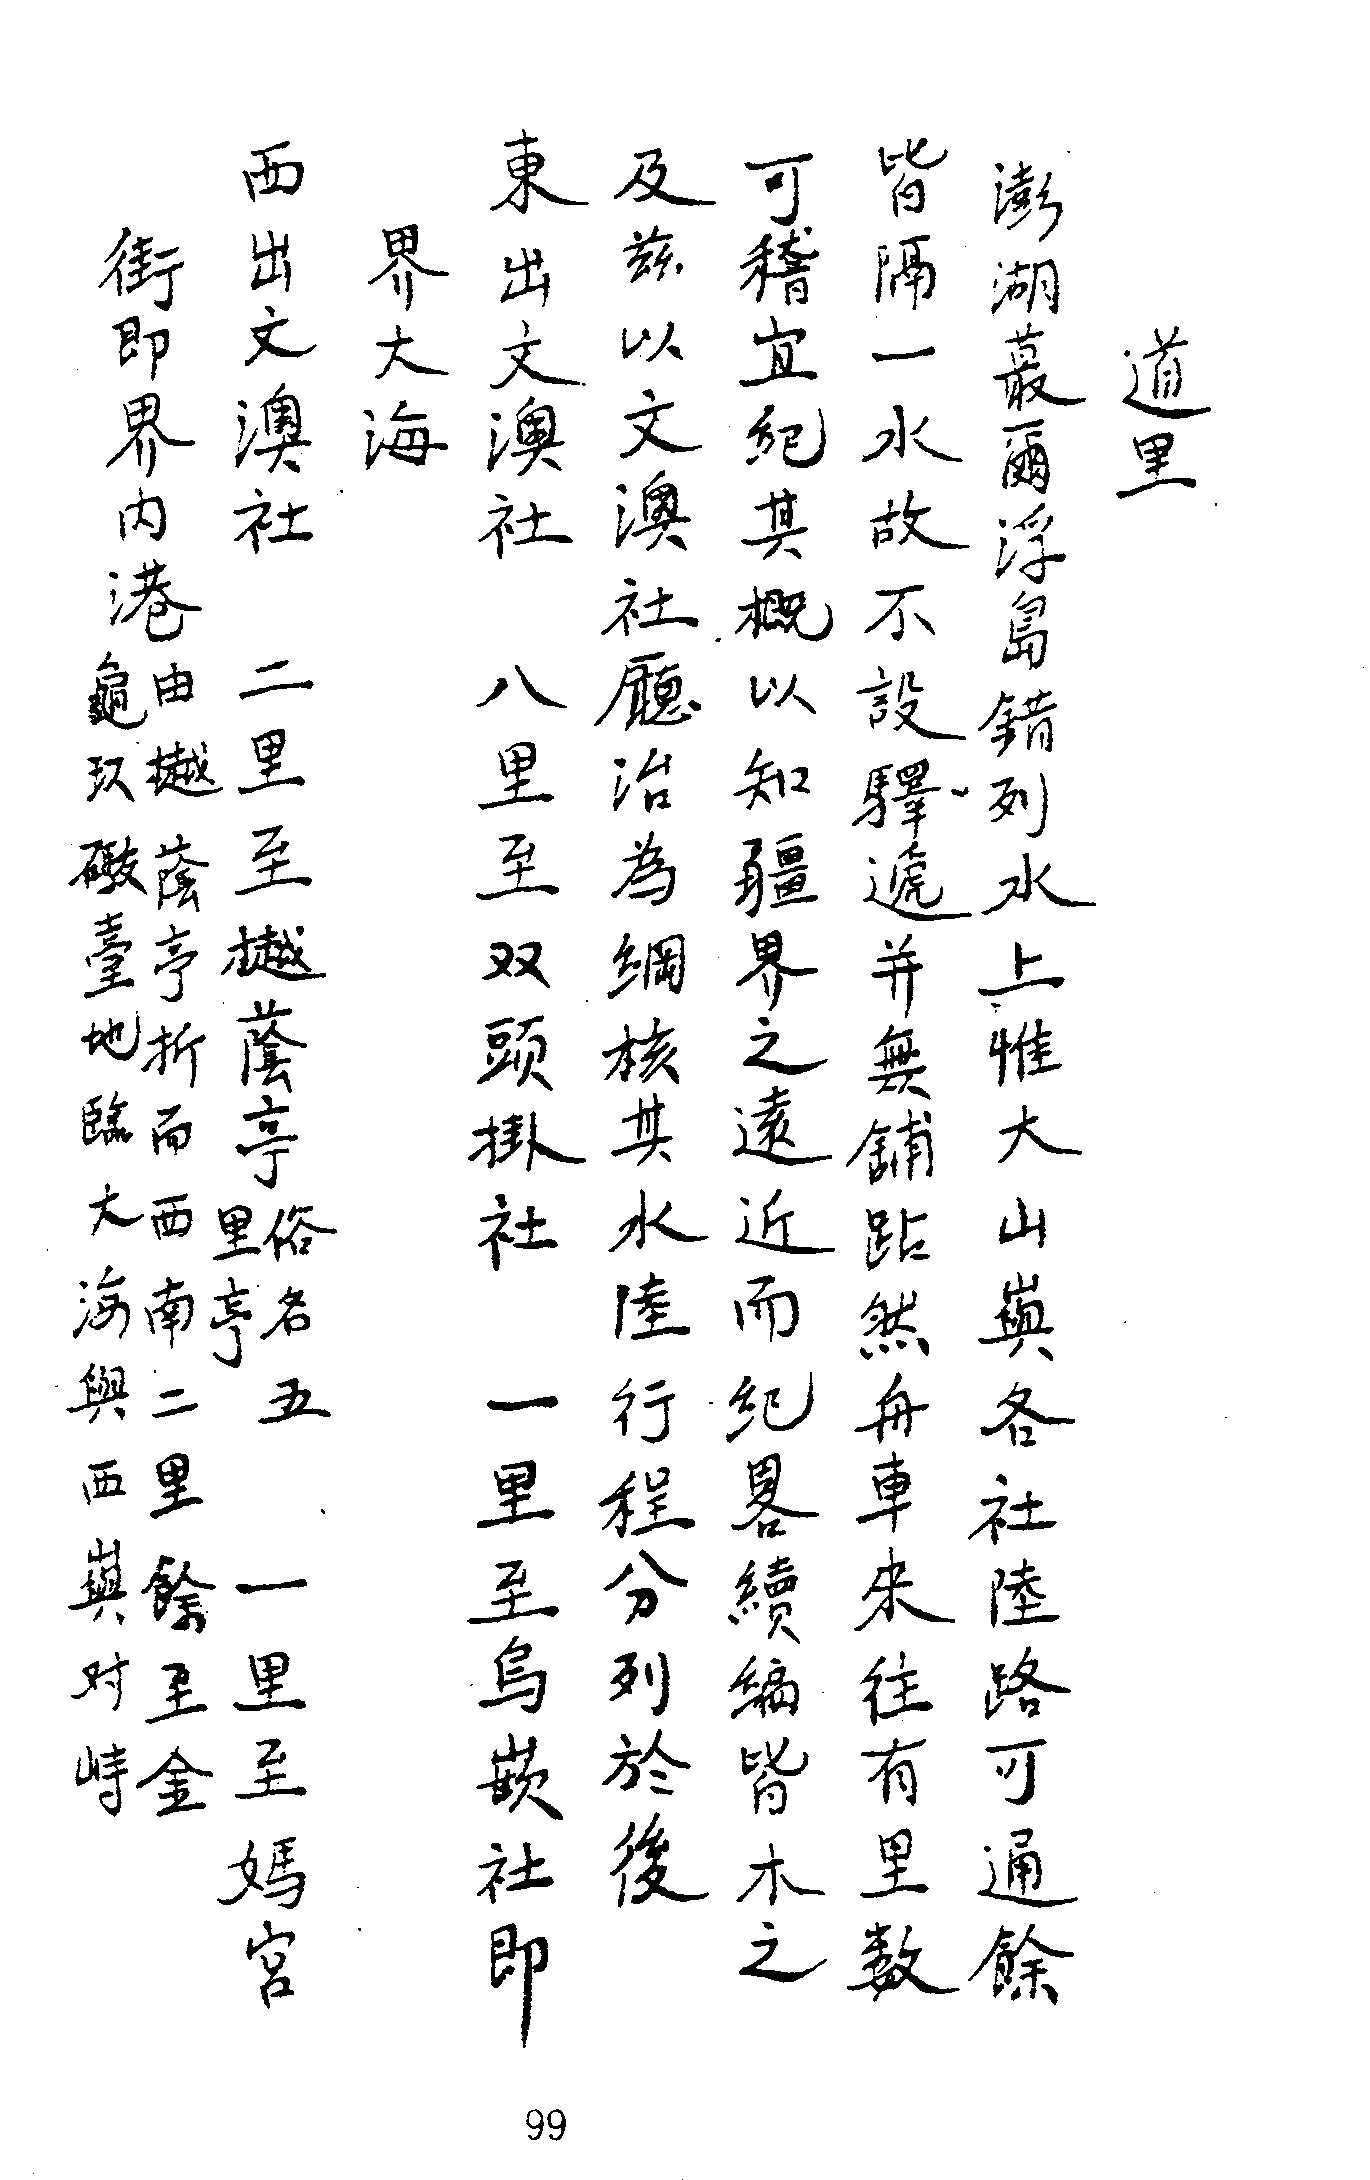 道里
澎湖蕞爾浮島錯列水上惟大山嶼各社陸路可通餘
皆隔一水故不設驛遞并無舖跕然舟車來往有里数
可稽宜紀其概以知疆界之遠近而紀畧續编皆木之
及兹以文澳社廳治為綱核其水陸行程分列於後
東出文澳社 八里至双頭掛社 一里至烏嵌社即
界大海
西出文澳社 二里至樾蔭亭俗名五里亭 一里至媽宫
街即界内港由樾蔭亭折而西南二里餘至金
龜玖礮臺地臨大海與西嶼对峙
99